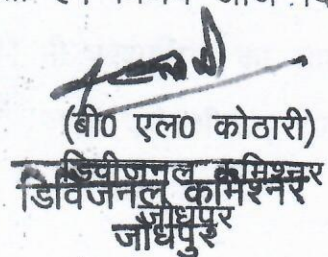 (बी0 एल0 कोठारी)
डिवीजनल कमिश्नर
डिविजनल कमिश्नर
जोधपुर
जौधपुर